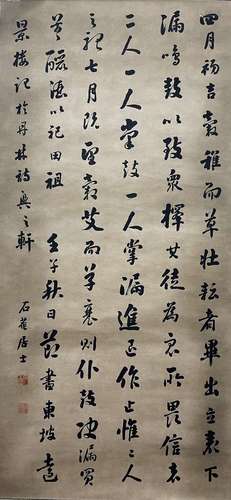 四月初吉穀稚而草壯耘者畢出立表下
漏鳴鼓以致眾擇其徒為眾所畏信者
二人一人掌鼓一人掌漏進退作止惟二人
之聽七月既望穀艾而草衰則仆鼓決漏買
羊醴酒以祀田祖 壬子秋日節書東坡遠
景樓記於丹林詩興之軒 石菴居士